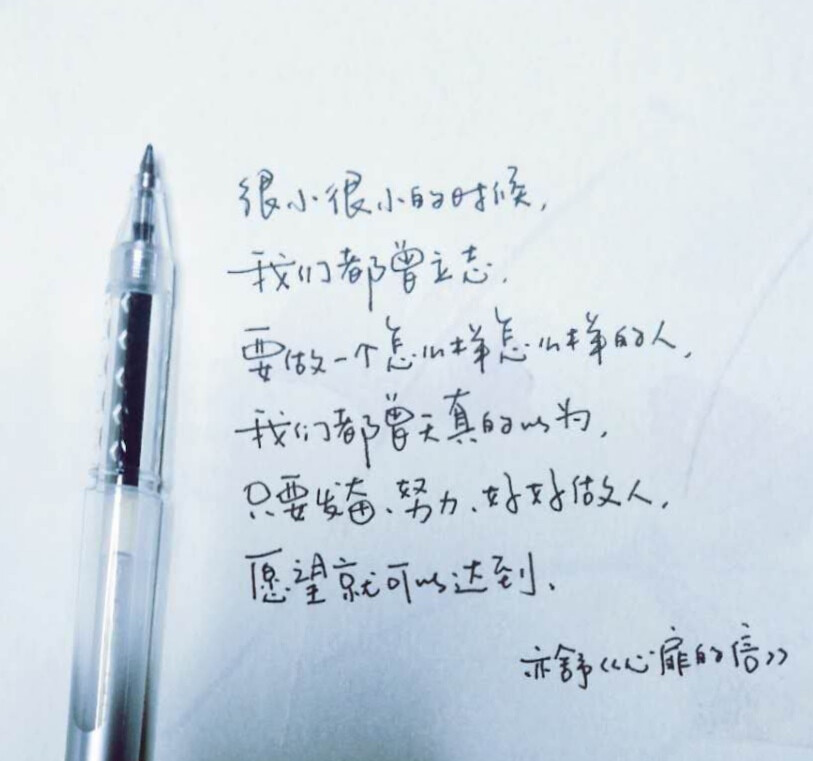 很小很小的时候,
我们都曾立志,
要做一个怎么样怎么样的人,
我们都曾天真的以为,
只要发奋、努力、好好做人,
愿望就可以达到、
亦舒《心扉的信》